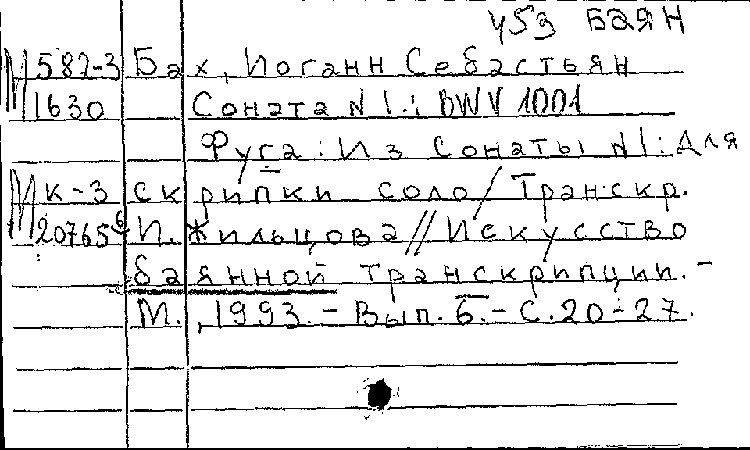 453 БАЯН
М582-3 Бах, Иоганн Себастьян
1630 Соната N1.: BWV 1001
Фуга: Из Сонаты N1: Для
МК-3 скрипки соло/Транскр.
20765б И. Жильцова//Искусство
баянной транскрипции.-
М.,1993.-Вып.6.-С.20-27.